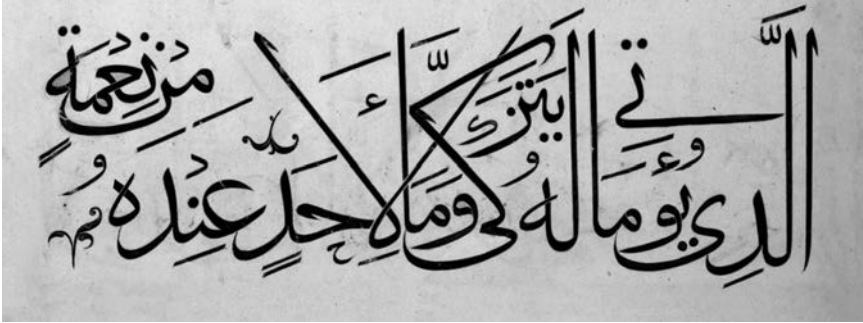 الَّذِي يُؤْتِي مَالَهُ يَتَزَكَّىٰ وَمَا لِأَحَدٍ عِنْدَهُ مِنْ نِعْمَةٍ